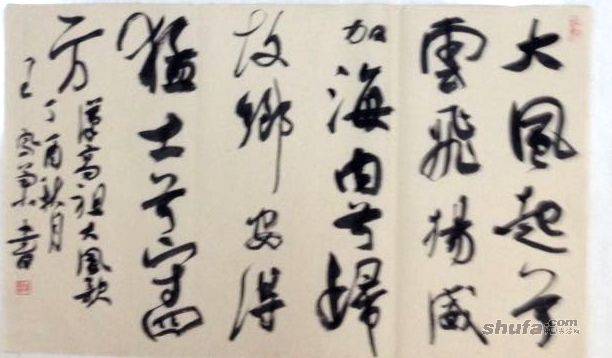 大風起兮
雲飛揚威
加海内兮歸
故鄉安得
猛士兮守四
方
漢高祖大風歌
丁酉秋月
書
shufa.com